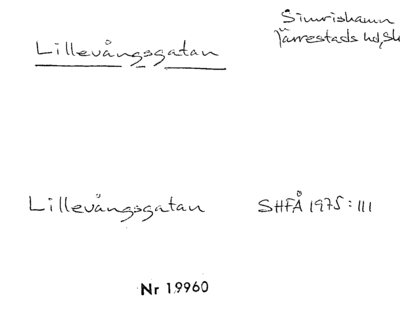 Simrishamn
Lillevångsgatan
Järrestads hd, Sk
Lillevångsgatan SHFÅ 1975:111
Nr 19960